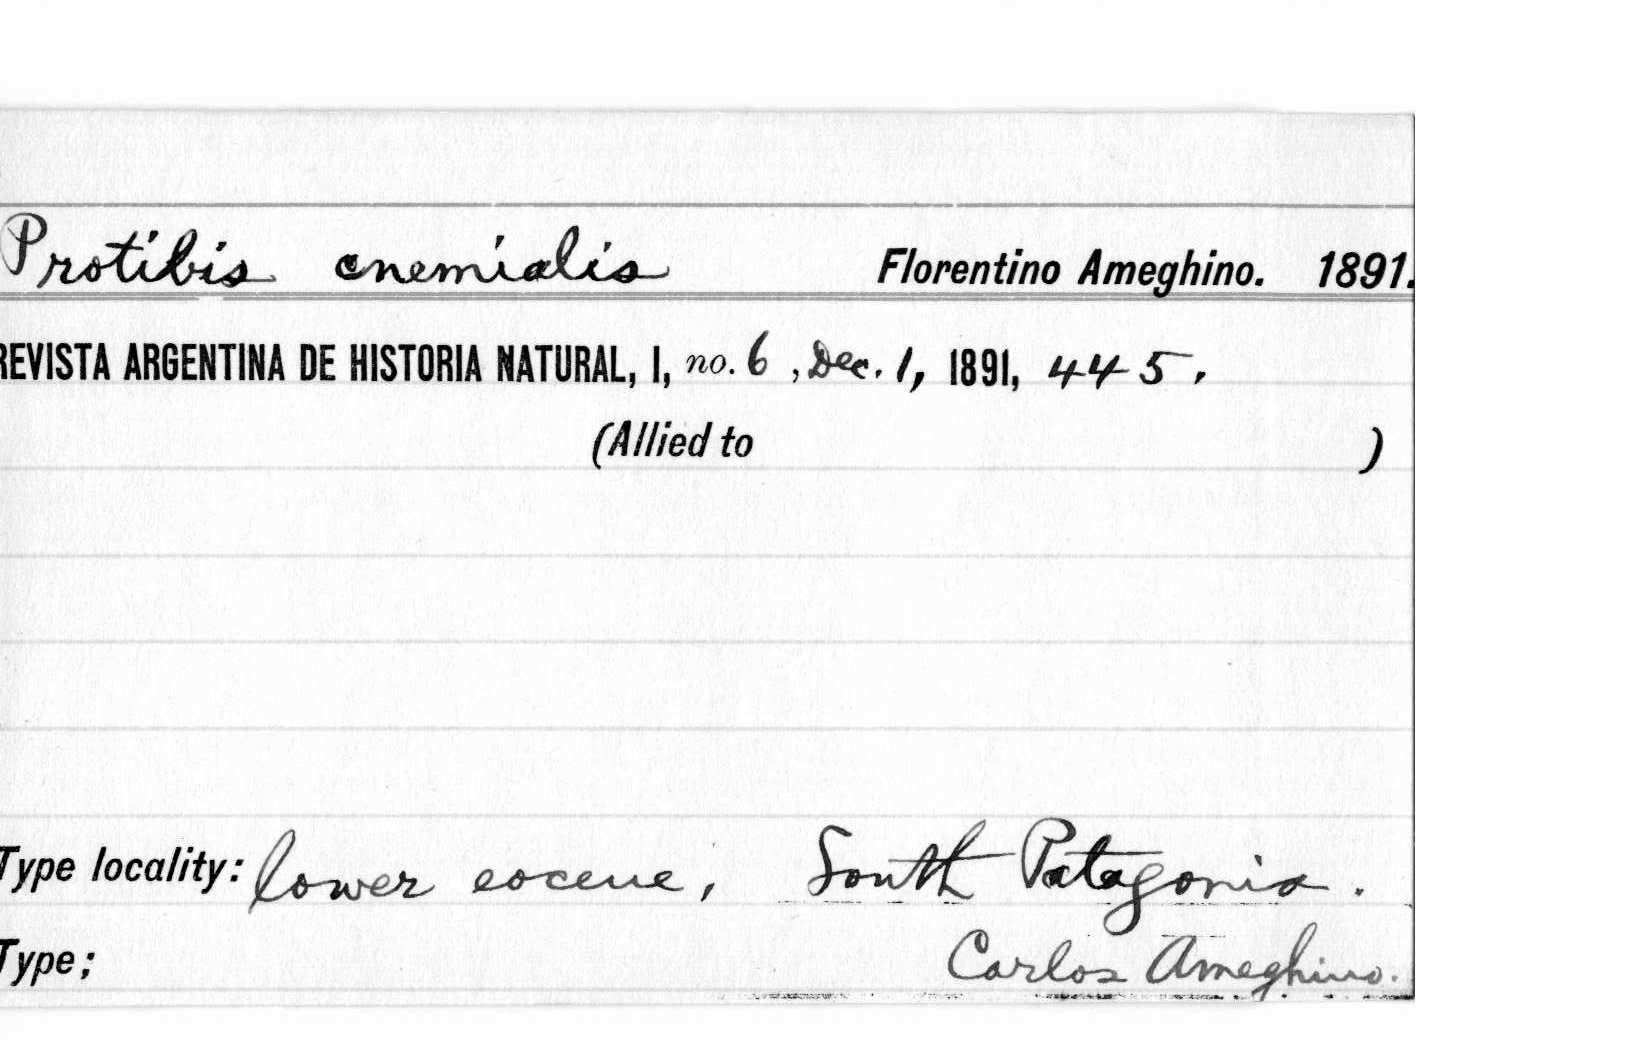 Protibis cnemialis Florentino Ameghino. 1891.
REVISTA ARGENTINA DE HISTORIA NATURAL, I, no. 6, Dec. 1, 1891, 445.
(Allied to )
Type locality: lower eocene, South Patagonia.
Type; Carlos Ameghino.